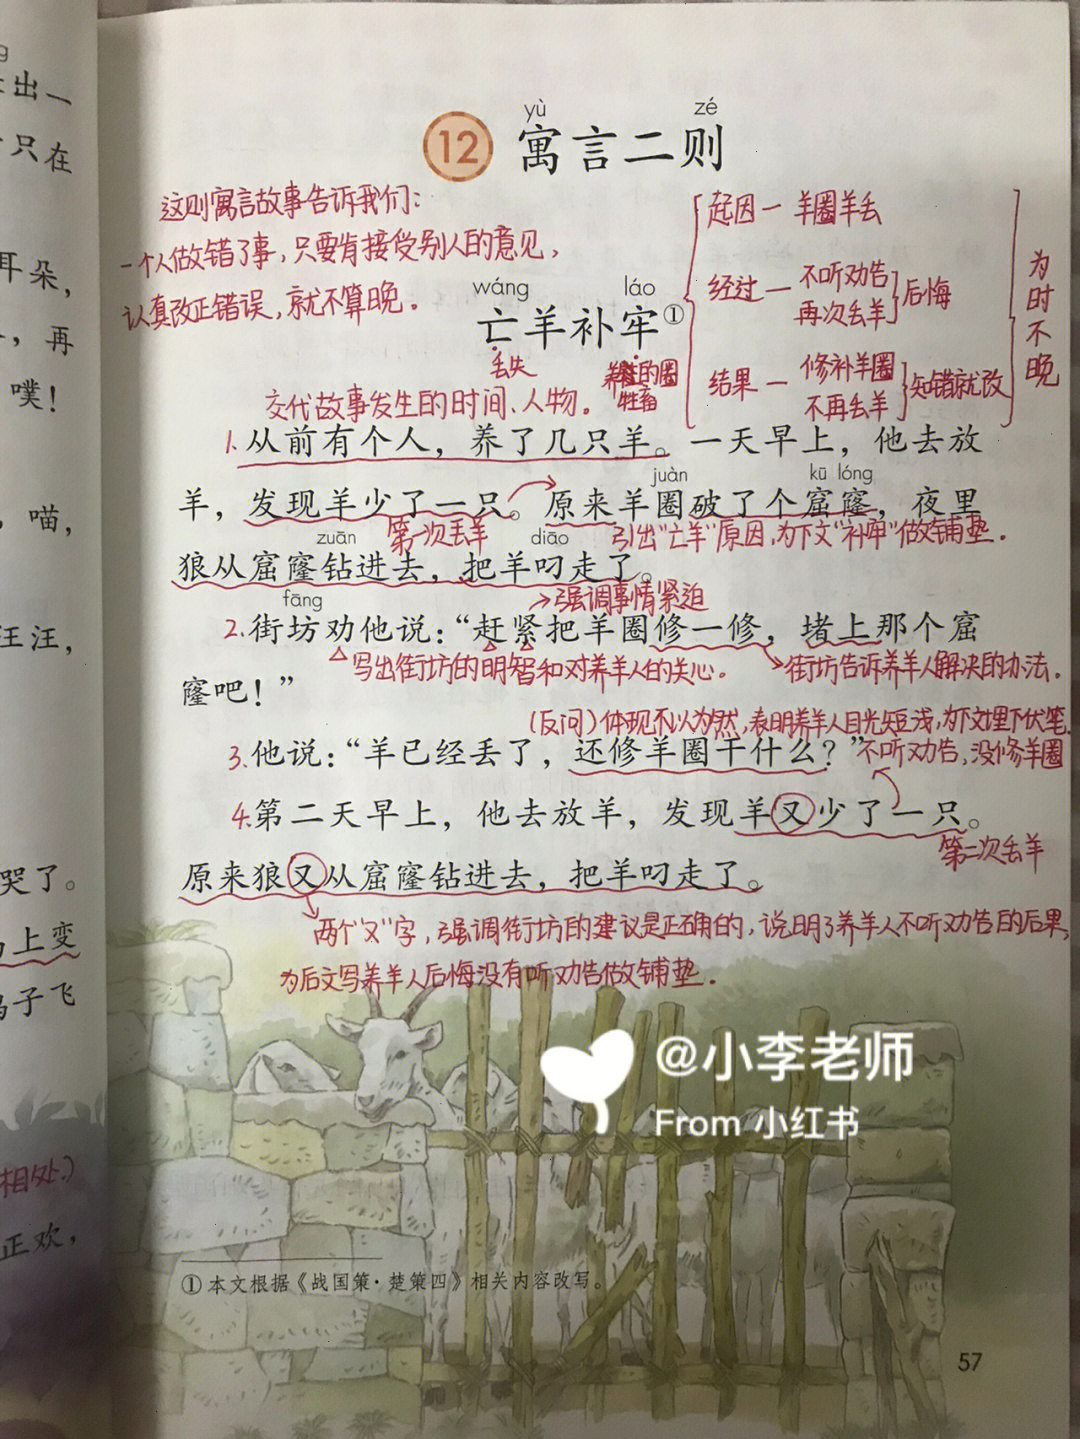 出一
只在
耳朵，
，再
噗！
，喵，
汪汪，
哭了。
上变
子飞
相处.）
正欢，
yù zé
12 寓言二则
这则寓言故事告诉我们：
一个人做错了事，只要肯接受别人的意见，
认真改正错误，就不算晚。
起因一 羊圈羊丢
经过一 不听劝告
再次丢羊
后悔
结果一 修补羊圈
不再丢羊
知错就改
为时不晚
wáng láo
亡羊补牢①
丢失
养牲的圈
牲畜
交代故事发生的时间、人物。
1.从前有个人，养了几只羊。一天早上，他去放
juàn kū lóng
羊，发现羊少了一只。原来羊圈破了个窟窿，夜里
第一次丢羊
引出“亡羊”原因，为下文“补牢”做铺垫．
zuān diāo
狼从窟窿钻进去，把羊叼走了。
强调事情紧迫
fāng
2.街坊劝他说：“赶紧把羊圈修一修，堵上那个窟
写出街坊的明智和对养羊人的关心．
街坊告诉养羊人解决的办法．
窿吧！”
（反问）体现不以为然，表明养羊人目光短浅，为下文埋下伏笔．
3.他说：“羊已经丢了，还修羊圈干什么？”
不听劝告，没修羊圈
4.第二天早上，他去放羊，发现羊又少了一只。
第二次丢羊
原来狼又从窟窿钻进去，把羊叼走了。
两个“又”字，强调街坊的建议是正确的，说明了养羊人不听劝告的后果，
为后文写养羊人后悔没有听劝告做铺垫．
@小李老师
From 小红书
①本文根据《战国策·楚策四》相关内容改写。
57